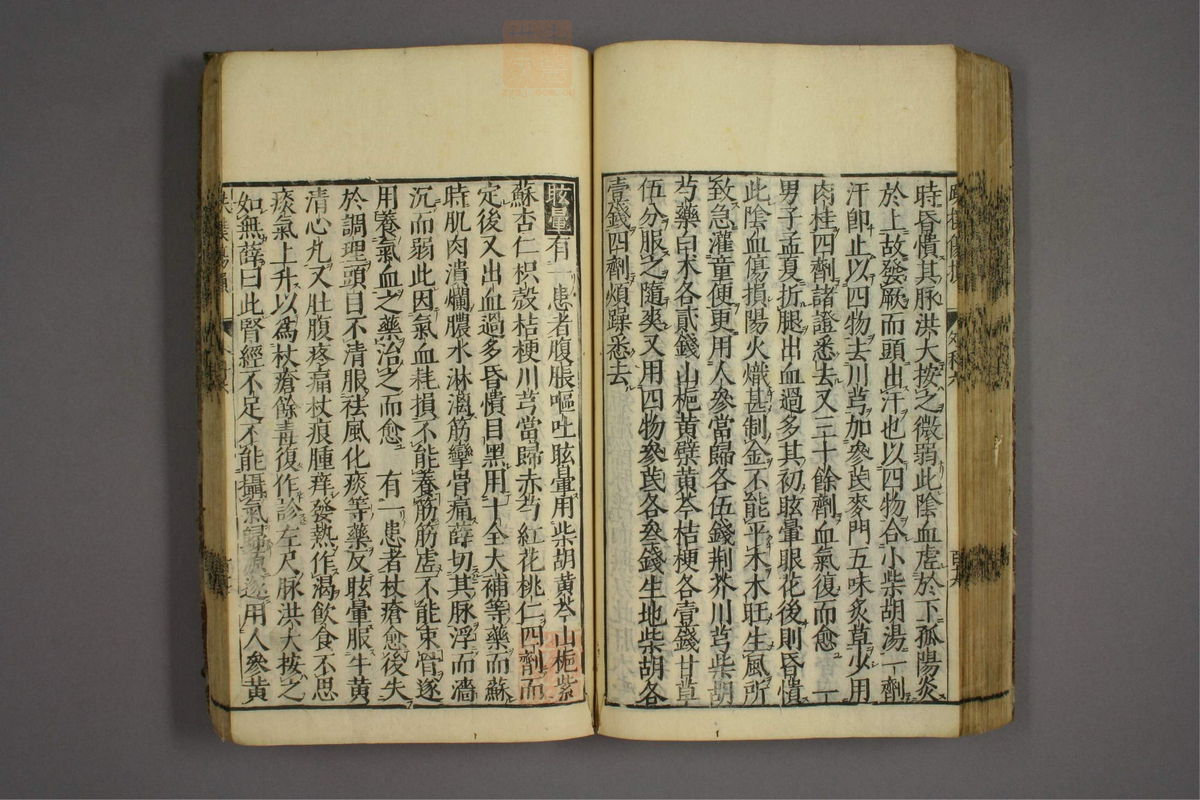 時昏憒其脉洪大按之微弱此陰血虛於下孤陽炎
於上故發厥而頭出汗也以四物合小柴胡湯一劑
汗卽止以四物去川芎加參芪麥門五味炙草少用
肉桂四劑諸證悉去又三十餘劑血氣復而愈 一
男子孟夏折腿出血過多其初眩暈眼花後則昏憒
此陰血傷損陽火熾甚制金不能平木木旺生風所
致急灌童便更用人參當歸各伍錢荆芥川芎柴胡
芍藥白术各貳錢山梔黃蘗黃芩桔梗各壹錢甘草
伍分服之隨爽又用四物參芪各叁錢生地柴胡各
壹錢四劑煩躁悉去
眩暈有一患者腹脹嘔吐眩暈用柴胡黃芩山梔紫
蘇杏仁枳殼桔梗川芎當歸赤芍紅花桃仁四劑而
定後又出血過多昏憒目黑用十全大補等藥而蘇
時肌肉潰爛膿水淋漓筋攣骨痛薛切其脉浮而濇
沉而弱此因氣血耗損不能養筋筋虛不能束骨遂
用養氣血之藥治之而愈 有一患者杖瘡愈後失
於調理頭目不清服祛風化痰等藥反眩暈服牛黃
清心丸又肚腹疼痛杖痕腫痒發熱作渴飲食不思
痰氣上升以爲杖瘡餘毒復作診左尺脉洪大按之
如無薛曰此腎經不足不能攝氣歸源遂用人參黃